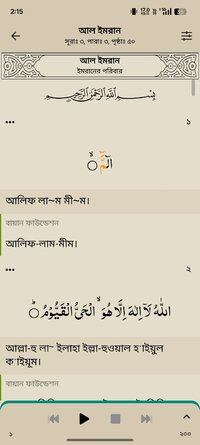 2:15
আল ইমরান
সূরাঃ ৩, পারাঃ ৩, পৃষ্ঠাঃ ৫০
আল ইমরান
ইমরানের পরিবার
بِسْمِ اللّٰهِ الرَّحْمٰنِ الرَّحِيْمِ
১
الٓمّٓ ۙ
আলিফ লা~ম মী~ম।
বায়ান ফাউন্ডেশন
আলিফ-লাম-মীম।
২
اللّٰهُ لَاۤ اِلٰهَ اِلَّا هُوَ ۙ الْحَیُّ الْقَیُّوْمُ ؕ
আল্লা-হু লা~ ইলাহা ইল্লা-হুওয়াল হ াইয়ুল
ক াইয়ূম।
বায়ান ফাউন্ডেশন
১
২০০